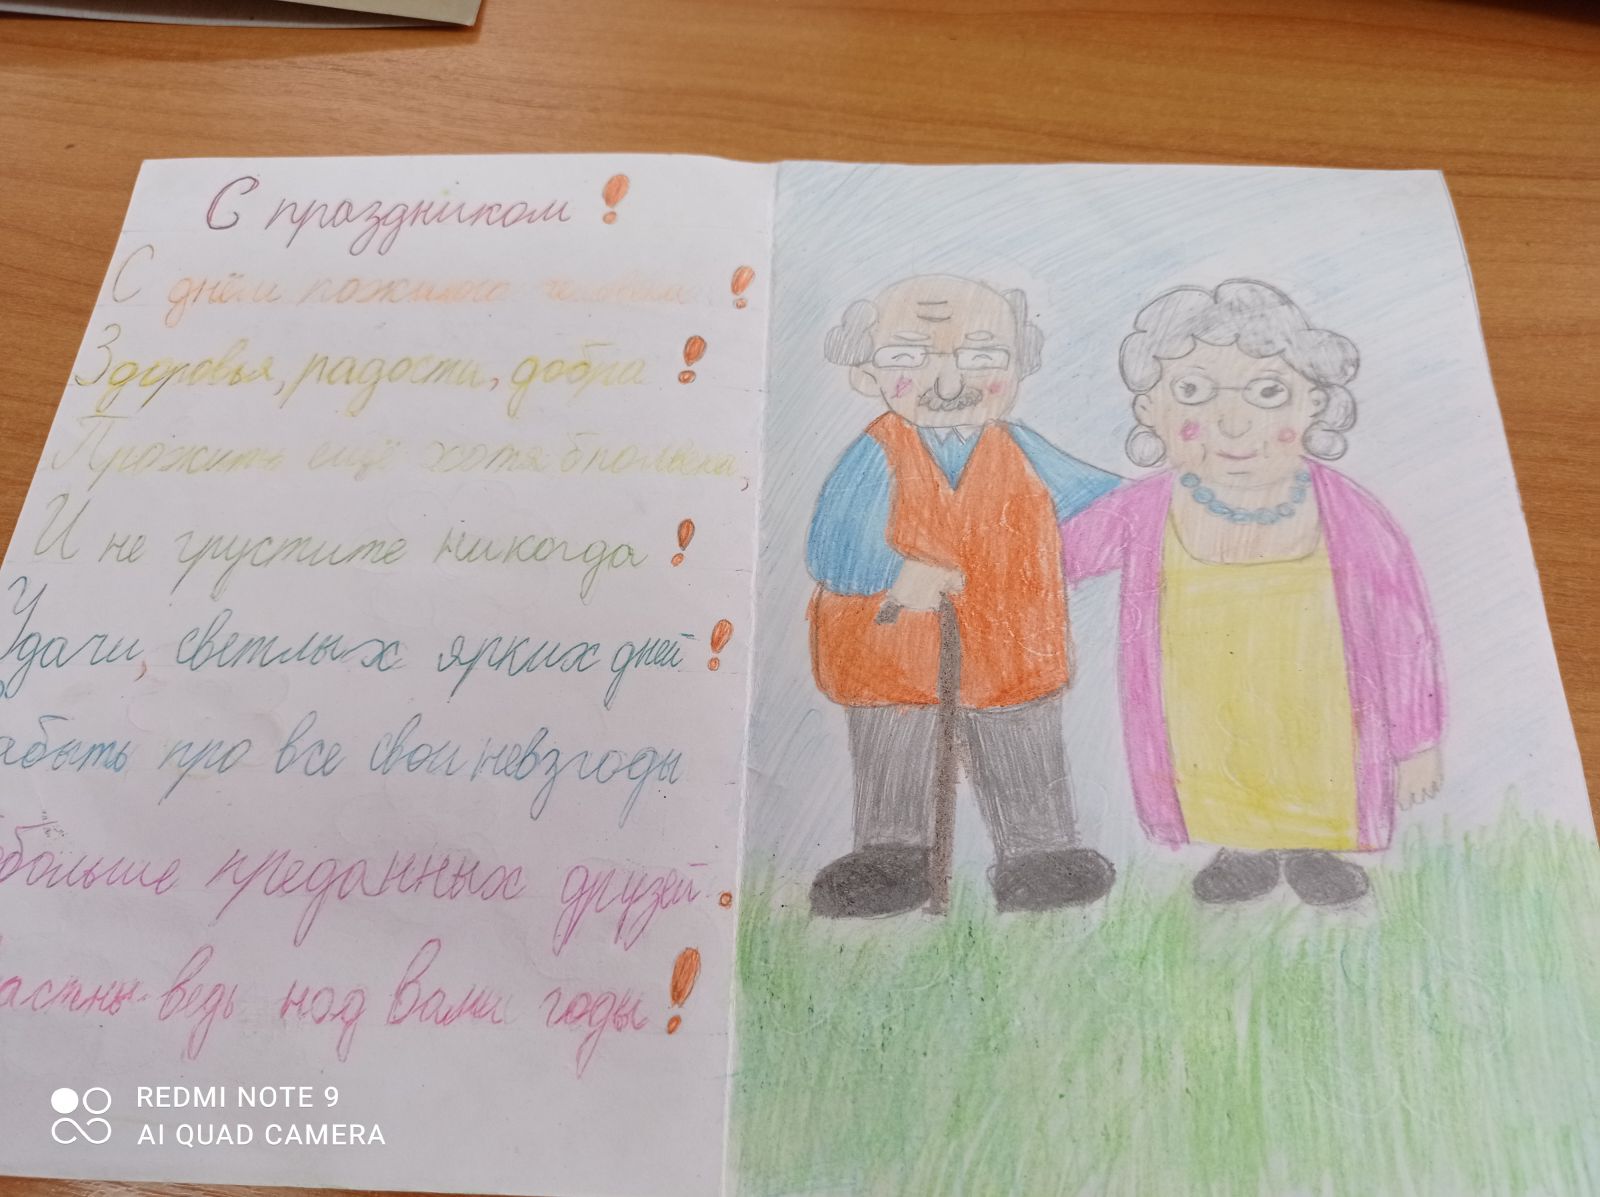 С праздником!
С днём пожилого человека!
Здоровья, радости, добра!
Прожить ещё хотя б полвека,
И не грустите никогда!
Удачи, светлых ярких дней!
абыть про все свои невзгоды
больше преданных друзей.
астны ведь над Вами годы!
REDMI NOTE 9
AI QUAD CAMERA